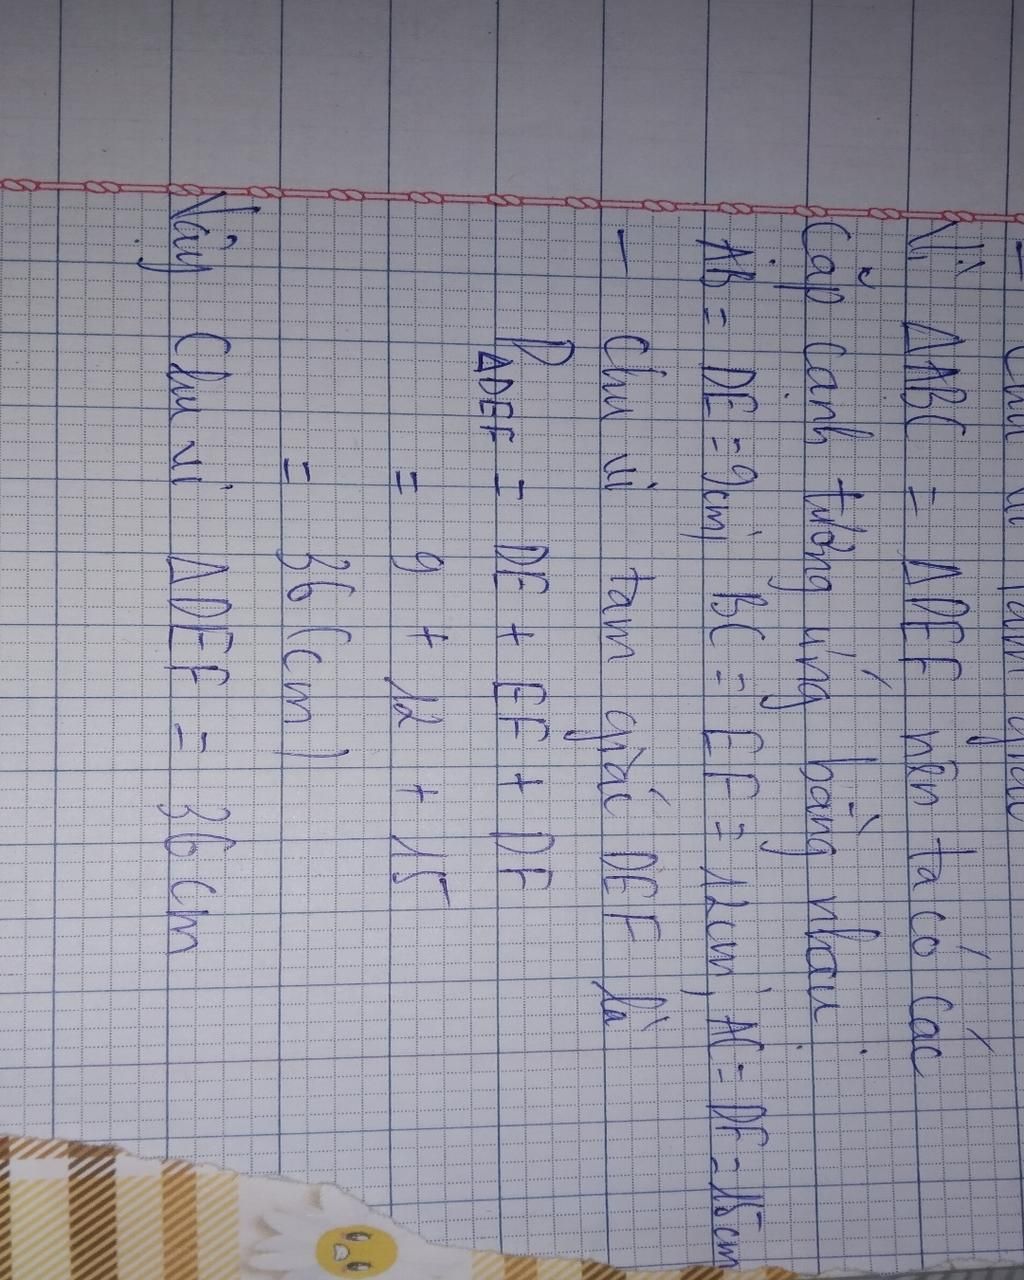 - Chu vi tam giác
Vì ΔABC = ΔDEF nên ta có các
Cặp cạnh tương ứng bằng nhau
AB = DE = 9cm, BC = EF = 12cm, AC = DF = 15cm
- Chu vi tam giác DEF là
PΔDEF = DE + EF + DF
= 9 + 12 + 15
= 36 (cm)
Vậy Chu vi ΔDEF = 36 cm